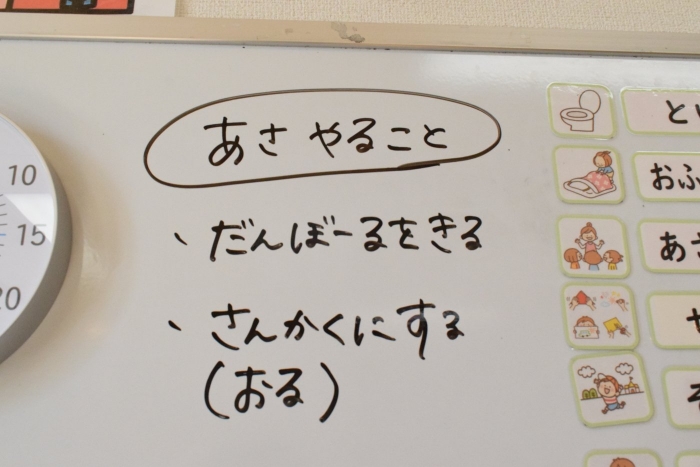 あさ やること
、だんぼーるをきる
、さんかくにする
(おる)
10
15
20
と
おふ
あさ